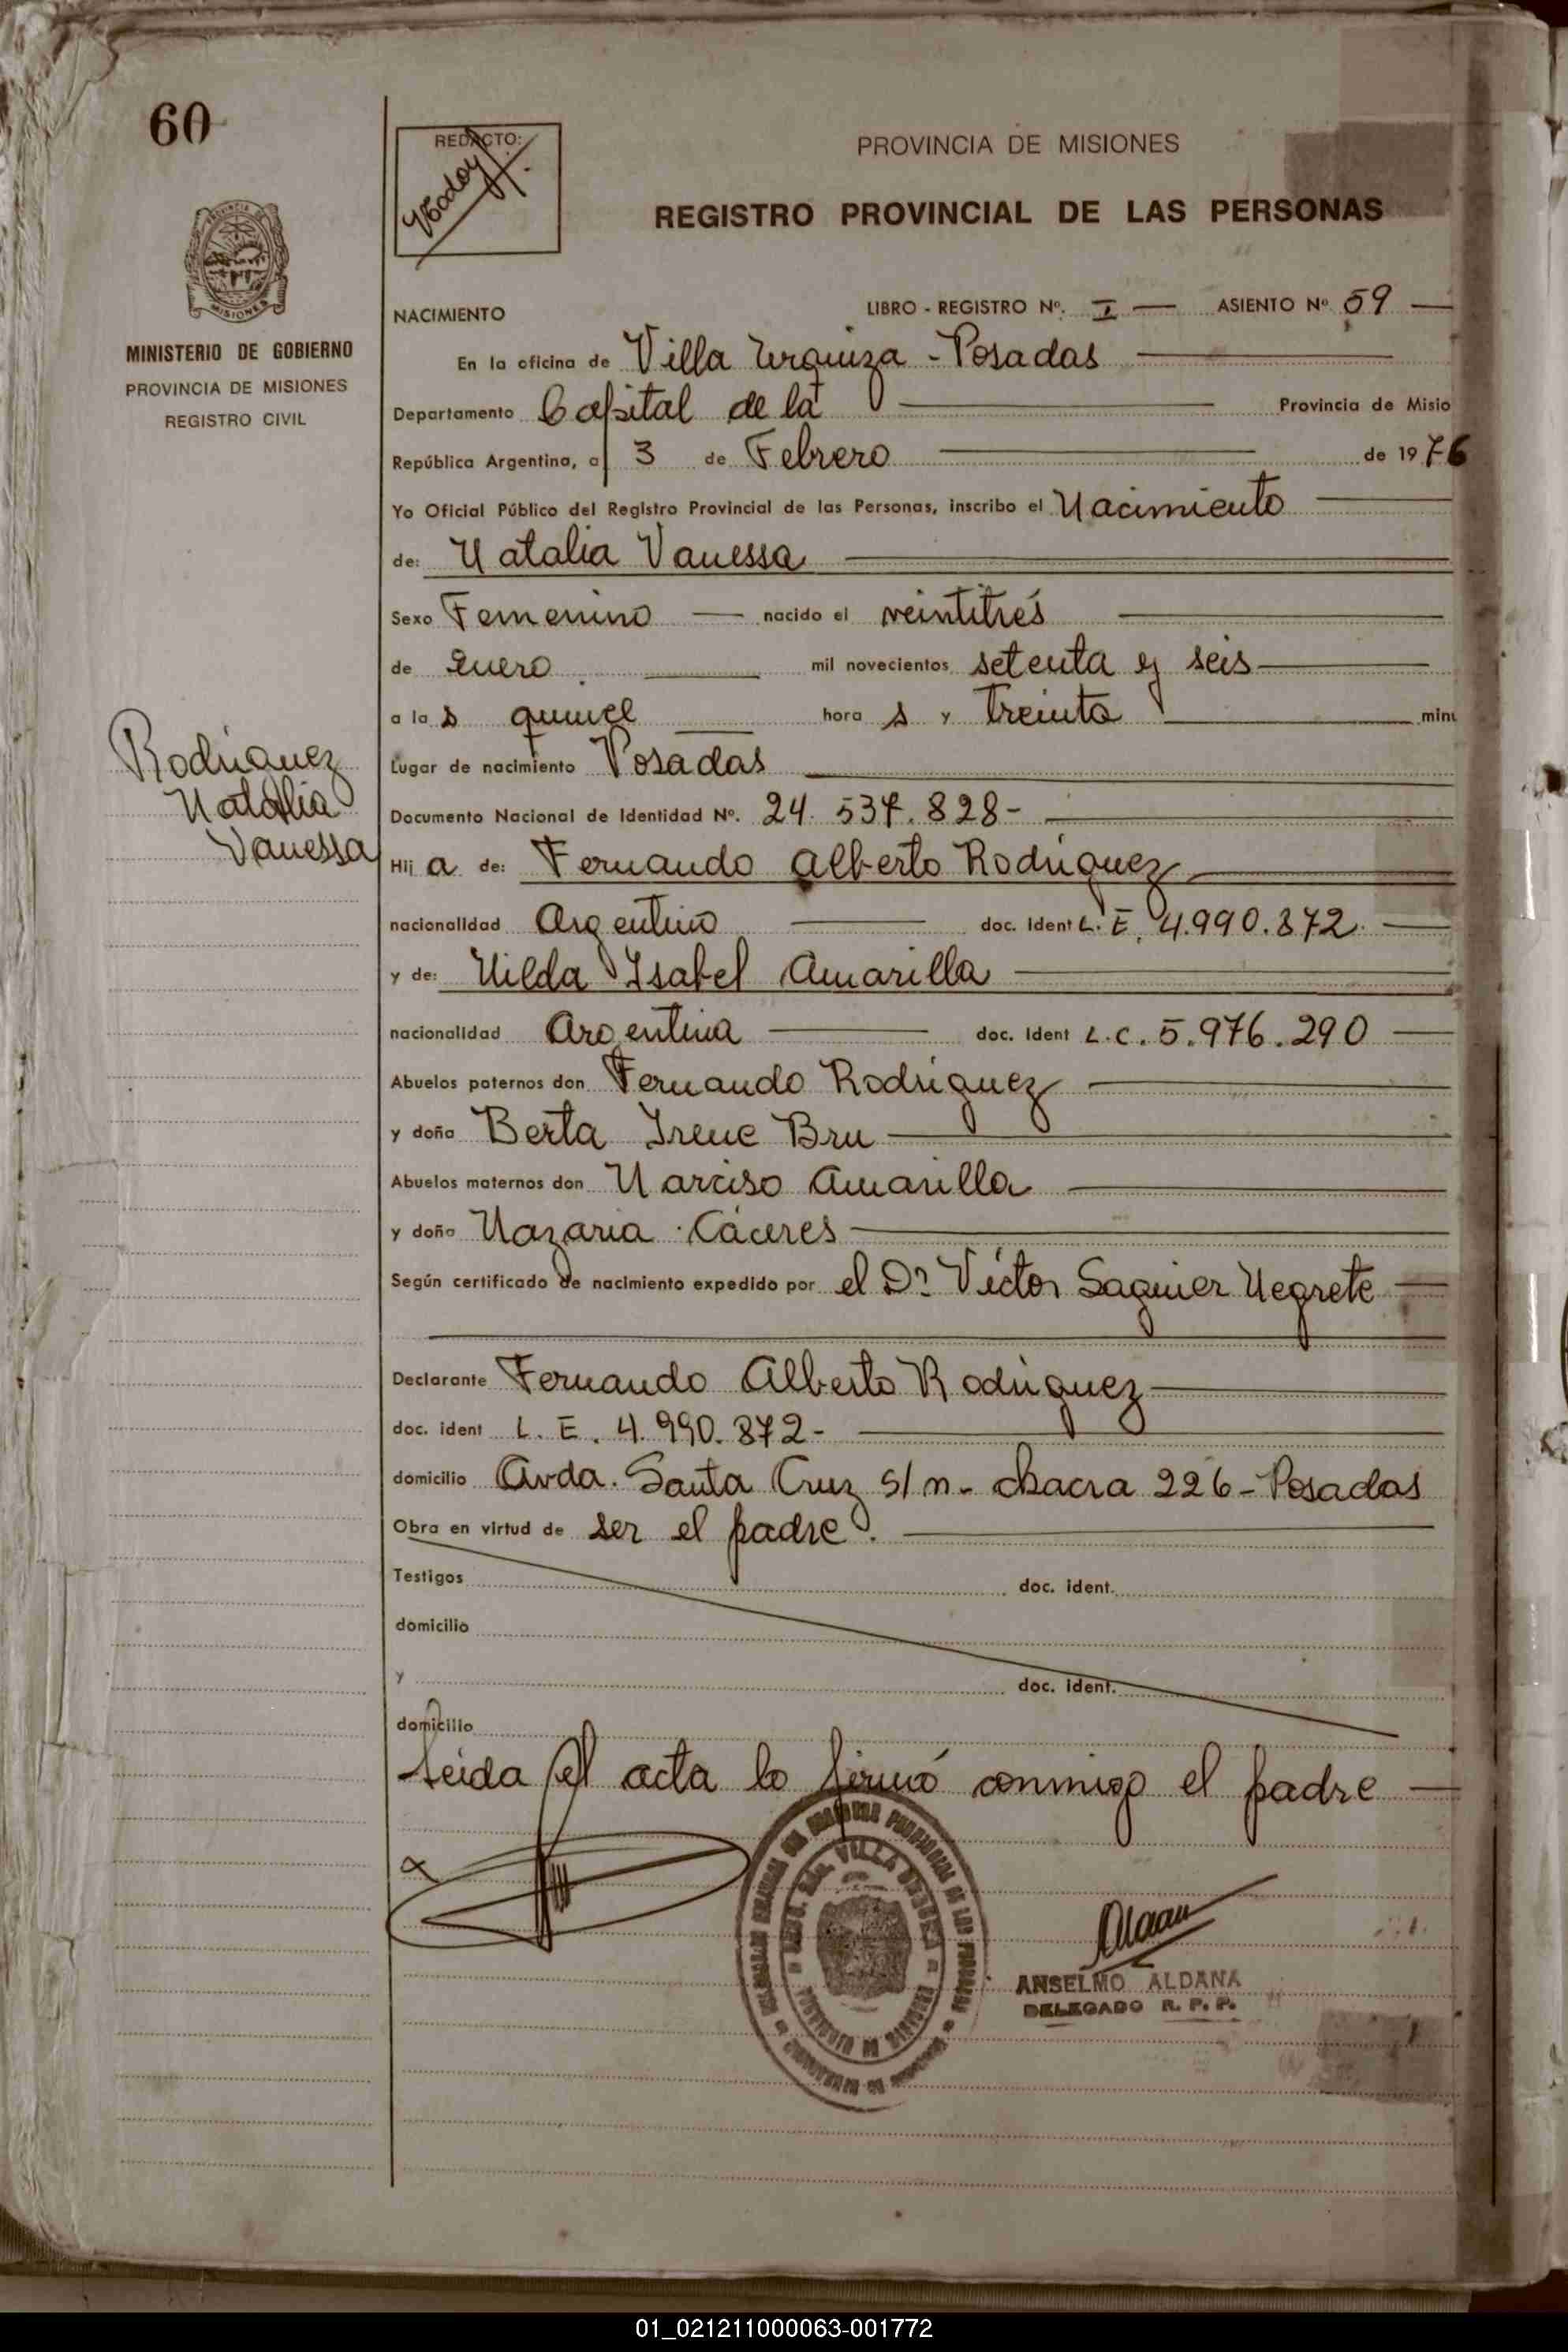 60
REDACTO:
PROVINCIA DE MISIONES
REGISTRO PROVINCIAL DE LAS PERSONAS
MINISTERIO DE GOBIERNO
PROVINCIA DE MISIONES
REGISTRO CIVIL
NACIMIENTO LIBRO - REGISTRO Nº. I — ASIENTO Nº 59 —
En la oficina de Villa Urquiza - Posadas
Departamento Capital de la Provincia de Misio
República Argentina, a 3 de Febrero de 1976
Yo Oficial Público del Registro Provincial de las Personas, inscribo el Nacimiento
de: Natalia Vanessa
Sexo Femenino — nacido el veintitrés
de Enero mil novecientos setenta y seis
a las quince horas y treinta minu
Rodríguez
Natalia
Vanessa
Lugar de nacimiento Posadas
Documento Nacional de Identidad Nº. 24.537.828-
Hija de: Fernando Alberto Rodríguez
nacionalidad Argentino doc. Ident L.E. 4.990.872.
y de: Nilda Isabel Amarilla
nacionalidad Argentina doc. Ident L.C. 5.976.290
Abuelos paternos don Fernando Rodríguez
y doña Berta Irene Bru
Abuelos maternos don Narciso Amarilla
y doña Nazaria Cáceres
Según certificado de nacimiento expedido por el Dr. Víctor Saguier Negrete
Declarante Fernando Alberto Rodríguez
doc. ident L.E. 4.990.872-
domicilio Avda. Santa Cruz s/n - chacra 226 - Posadas
Obra en virtud de ser el padre.
Testigos doc. ident.
domicilio
y doc. ident.
domicilio
Leída el acta lo firmó conmigo el padre —
VILLA URQUIZA
ANSELMO ALDANA
DELEGADO R. P. P.
01_021211000063-001772